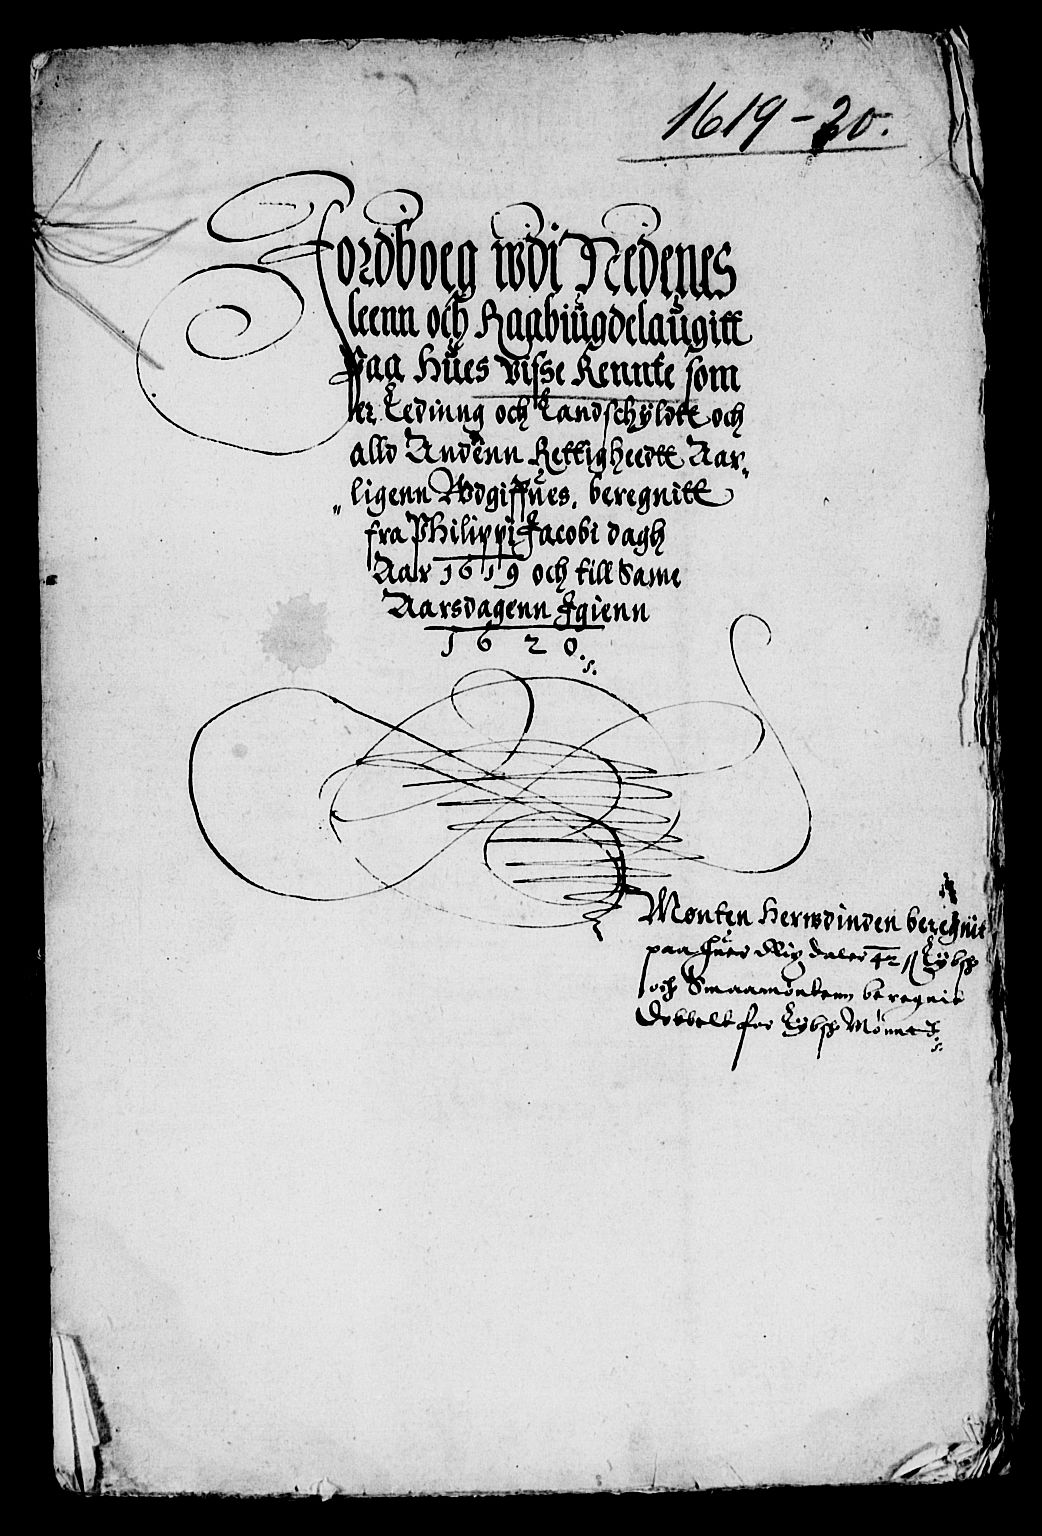 1619-20.
Jordboeg wdi Nedenes
leenn och Raabiugdelaugitt
Paa Hues Visse Rennte som
er Leding och Landschyldtt och
alld Andenn Rettigheedtt Aar„
„ligenn Wdgiffues, beregnitt
fra Philippi Jacobi dagh
Aar 1619 och till Same
Aarsdagenn Igienn
1620.
Mønten Herwdinden beregnit
paa huer daler 42 ß Lybsk
och Smaamøntenn beregnit
Dobbelt for Lybsk Mønnt